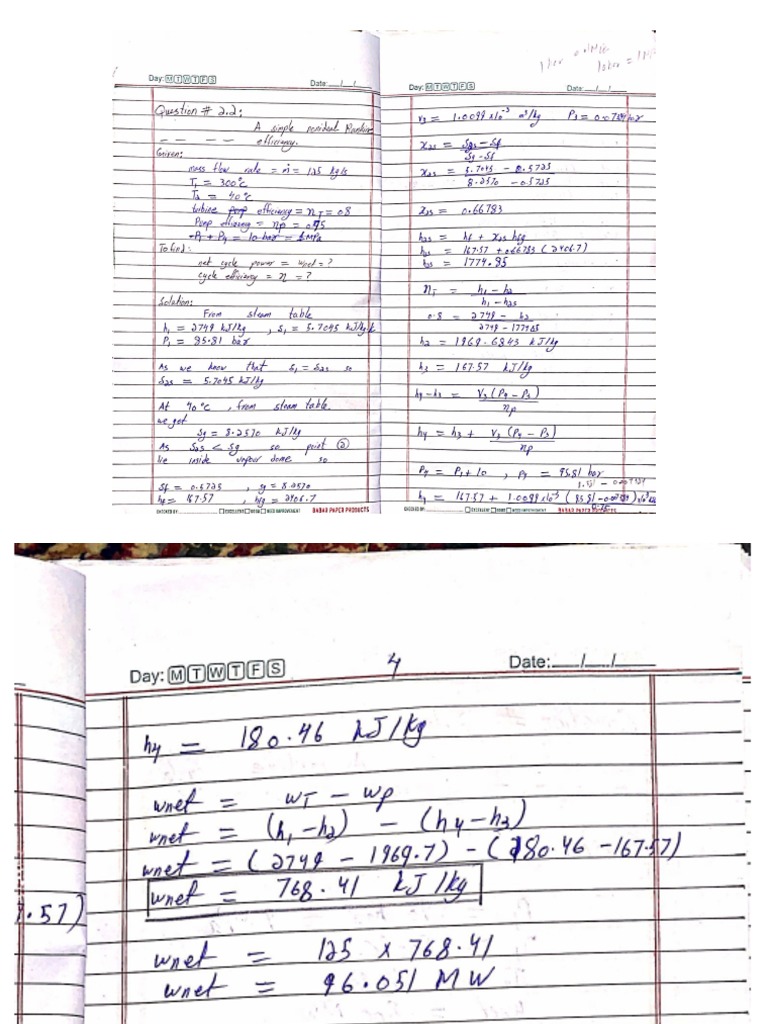 Day: M T W T F S Date: __/__/__
Question # 2.2:
A simple nonideal Rankine
— — — — efficiency.
Given:
mass flow rate = ṁ = 125 kg/s
T1 = 300°C
T3 = 40°C
turbine efficiency = nT = 0.8
Pump efficiency = np = 0.75
To find:
net cycle power = wnet = ?
cycle efficiency = η = ?
Solution:
From steam table
h1 = 2749 kJ/kg , s1 = 5.7045 kJ/kg.k
P1 = 85.81 bar
As we know that s1 = s2s so
s2s = 5.7045 kJ/kg
At 40°C , from steam table.
we get
sg = 8.2570 kJ/kg
As s2s < sg so point ②
lie inside vapour dome so
sf = 0.5725 , g = 8.2570
hf = 167.57 , hfg = 2406.7
CHECKED BY: EXCELLENT GOOD NEED IMPROVEMENT BABAR PAPER PRODUCTS
Day: M T W T F S Date: __/__/__
v3 = 1.0099 x10⁻³ m³/kg
x2s = s2s - sf / sg - sf
x2s = 5.7045 - 0.5725 / 8.2570 - 0.5725
x2s = 0.66783
h2s = hf + x2s hfg
h2s = 167.57 + 0.66783 (2406.7)
h2s = 1774.85
nT = h1 - h2 / h1 - h2s
0.8 = 2749 - h2 / 2749 - 1774.85
h2 = 1969.6843 kJ/kg
h3 = 167.57 kJ/kg
h4 - h3 = v3 (P4 - P3) / np
h4 = h3 + v3 (P4 - P3) / np
P4 = P1 + 10 , P4 = 95.81 bar
CHECKED BY: EXCELLENT GOOD NEED IMPROVEMENT BABAR PAPER PRODUCTS
Day: M T W T F S 4 Date: __/__/__
h4 = 180.46 kJ/kg
wnet = wT - wp
wnet = (h1 - h2) - (h4 - h3)
wnet = (2749 - 1969.7) - (180.46 - 167.57)
wnet = 768.41 kJ/kg
.57)
wnet = 125 x 768.41
wnet = 96.051 MW